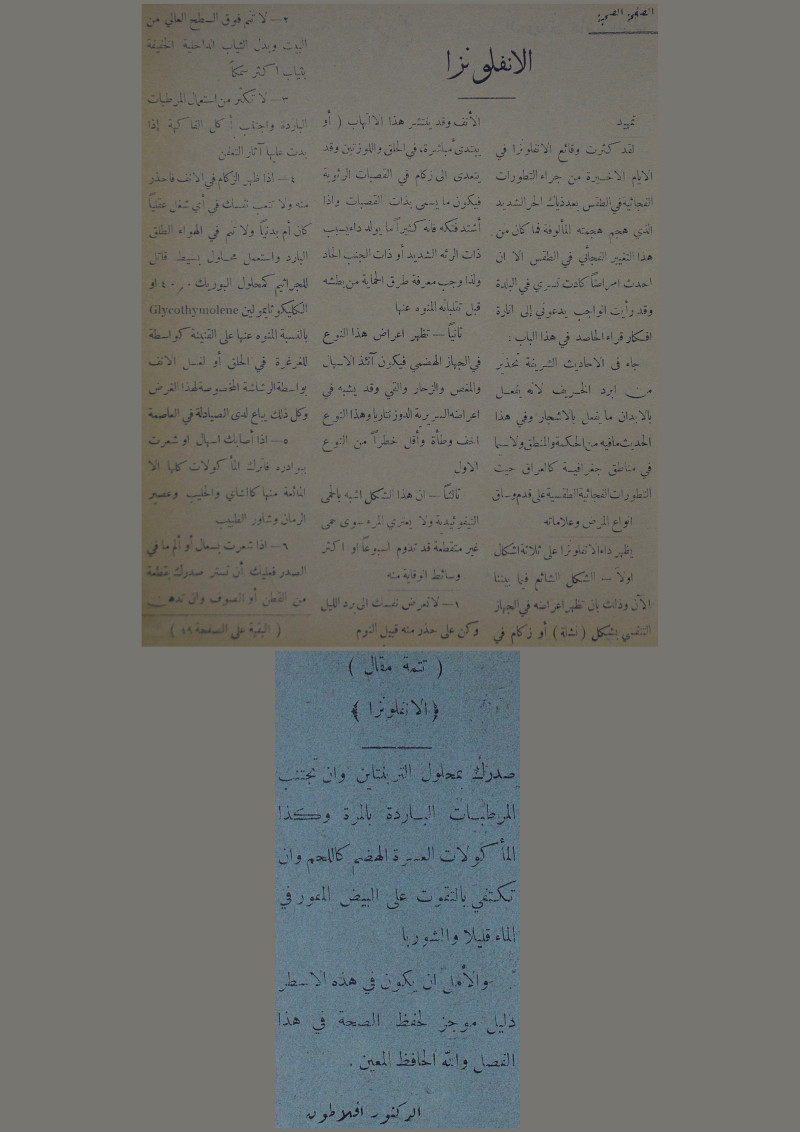 الصفحة الصحية
الانفلونزا
تمهيد
لقد كثرت وقائع الانفلونزا في
الايام الاخيرة من جراء التطورات
الفجائية في الطقس بعد ذياك الحر الشديد
الذي هجم هجمته المألوفة فما كان من
هذا التغيير الفجائي في الطقس الا ان
احدث امراضاً كادت تسري في البلدة
وقد رأيت الواجب يدعوني إلى انارة
افكار قراء الحاصد في هذا الباب :
جاء في الاحاديث الشريفة تحذير
من ابرد الخريف لانه يفعل
بالابدان ما يفعل بالاشجار وفي هذا
الحديث مافيه من الحكمة والمنطق ولاسيما
في مناطق جغرافية كالعراق حيث
التطورات الفجائية الطقسية على قدم وساق
انواع المرض وعلاماته
يظهر داء الانفلونزا على ثلاثة اشكال
اولاً — الشكل الشائع فيما بيننا
الآن وذلك بان تظهر اعراضه في الجهاز
التنفسي بشكل ( نشلة ) أو زكام في
الأنف وقد ينتشر هذا الالتهاب ( أو
يبتدئ مباشرة ، في الحلق واللوزتين وقد
يتعدى الى زكام في القصبات الرئوية
فيكون ما يسمى بذات القصبات واذا
أشتد فتكه فانه كثيراً ما يولد داء يسبب
ذات الرئه الشديد أو ذات الجنب الحاد
ولذا وجب معرفة طرق الحماية من بطشه
قبل تقلباته المنوه عنها
ثانياً — تظهر اعراض هذا النوع
في الجهاز الهضمي فيكون آنئذ الاسهال
والمغص والزحار والقي وقد يشبه في
اعراضه السريرية الدوزنتاريا وهذا النوع
اخف وطأة وأقل خطراً من النوع
الاول
ثالثاً — ان هذا الشكل اشبه بالحمى
التيفوئيدية ولا يعتري المرء سوى حمى
غير متقطعة قد تدوم اسبوعاً او اكثر
وسائط الوقاية منه
١ — لاتعرض نفسك الى برد الليل
وكن على حذر منه قبيل النوم
٢ — لا تنم فوق السطح العالي من
البيت وبدل الثياب الداخلية الخفيفة
بثياب اكثر سمكاً
٣ — لا تكثر من استعمال المرطبات
الباردة واجتنب أكل الفاكهة إذا
بدت عليها آثار التعفن
٤ — اذا ظهر الزكام في الانف فاحذر
منه ولا تتعب نفسك في أي شغل عقلياً
كان أم بدنياً ولا تنم في الهواء الطلق
البارد واستعمل محلول بسيط قاتل
للجراثيم كمحلول البوريك او
الكليكو تايمولين Glycothymolene
بالنسبة المنوه عنها على القنينة كواسطة
للغرغرة في الحلق أو لغسل الانف
بواسطة الرشاشة المخصوصة لهذا الغرض
وكل ذلك يباع لدى الصيادلة في العاصمة
٥ — اذا أصابك اسهال او شعرت
ببوادره فاترك المأكولات كلها الا
المائعة منها كالشاي والحليب وعصير
الرمان وشاور الطبيب
٦ — اذا شعرت بسعال أو ألم ما في
الصدر فعليك أن تستر صدرك بقطعة
من القطن أو الصوف وان تدهن
( البقية على الصفحة ١٩ )
( تتمة مقال )
﴿ الانفلونزا ﴾
صدرك بمحلول التربنتاين وان تجتنب
المرطبات الباردة بالمرة وكذا
المأكولات العسرة الهضم كاللحم وان
تكتفي بالتقوت على البيض المور في
الماء قليلا والشوربا
والأمل ان يكون في هذه الاسطر
دليل موجز لحفظ الصحة في هذا
الفصل والله الحافظ المعين .
الدكتور افلاطون